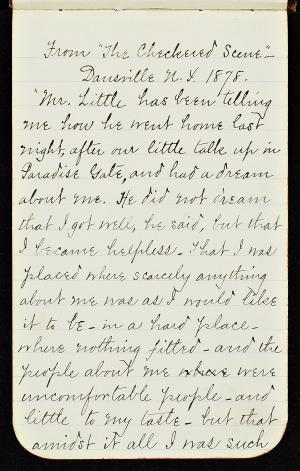 From "The Checkered Scene"-
Dansville N.Y. 1878.
"Mr. Little has been telling
me how he went home last
night, after our little talk up in
Paradise Gate, and had a dream
about me. He did not dream
that I got well, he said, but that
I became helpless - That I was
placed where scarcely anything
about me was as I would like
it to be - in a hard place -
where nothing fitted - and the
people about me where were
uncomfortable people - and
little to my taste - but that
amidst it all I was such